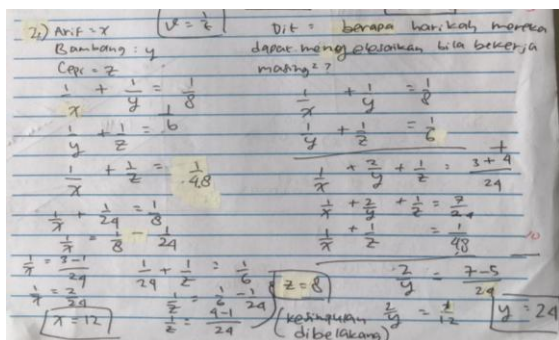 2.) Arif = x
Bambang : y
Cepi = z
Dit = berapa harikah mereka
dapat menyelesaikan bila bekerja
masing²?
1/x + 1/y = 1/8
1/y + 1/z = 1/6
1/x + 1/z = 1/4.8
1/x + 1/24 = 1/8
1/x = 1/8 - 1/24
1/x = 3-1/24
1/x = 2/24
x = 12
1/24 + 1/z = 1/6
1/z = 1/6 - 1/24
1/z = 4-1/24
z = 8
(kesimpulan
dibelakang)
1/x + 1/y = 1/8
1/y + 1/z = 1/6
+
1/x + 2/y + 1/z = 3+4/24
1/x + 2/y + 1/z = 7/24
1/x + 1/z = 1/4.8
2/y = 7-5/24
2/y = 1/12
y = 24